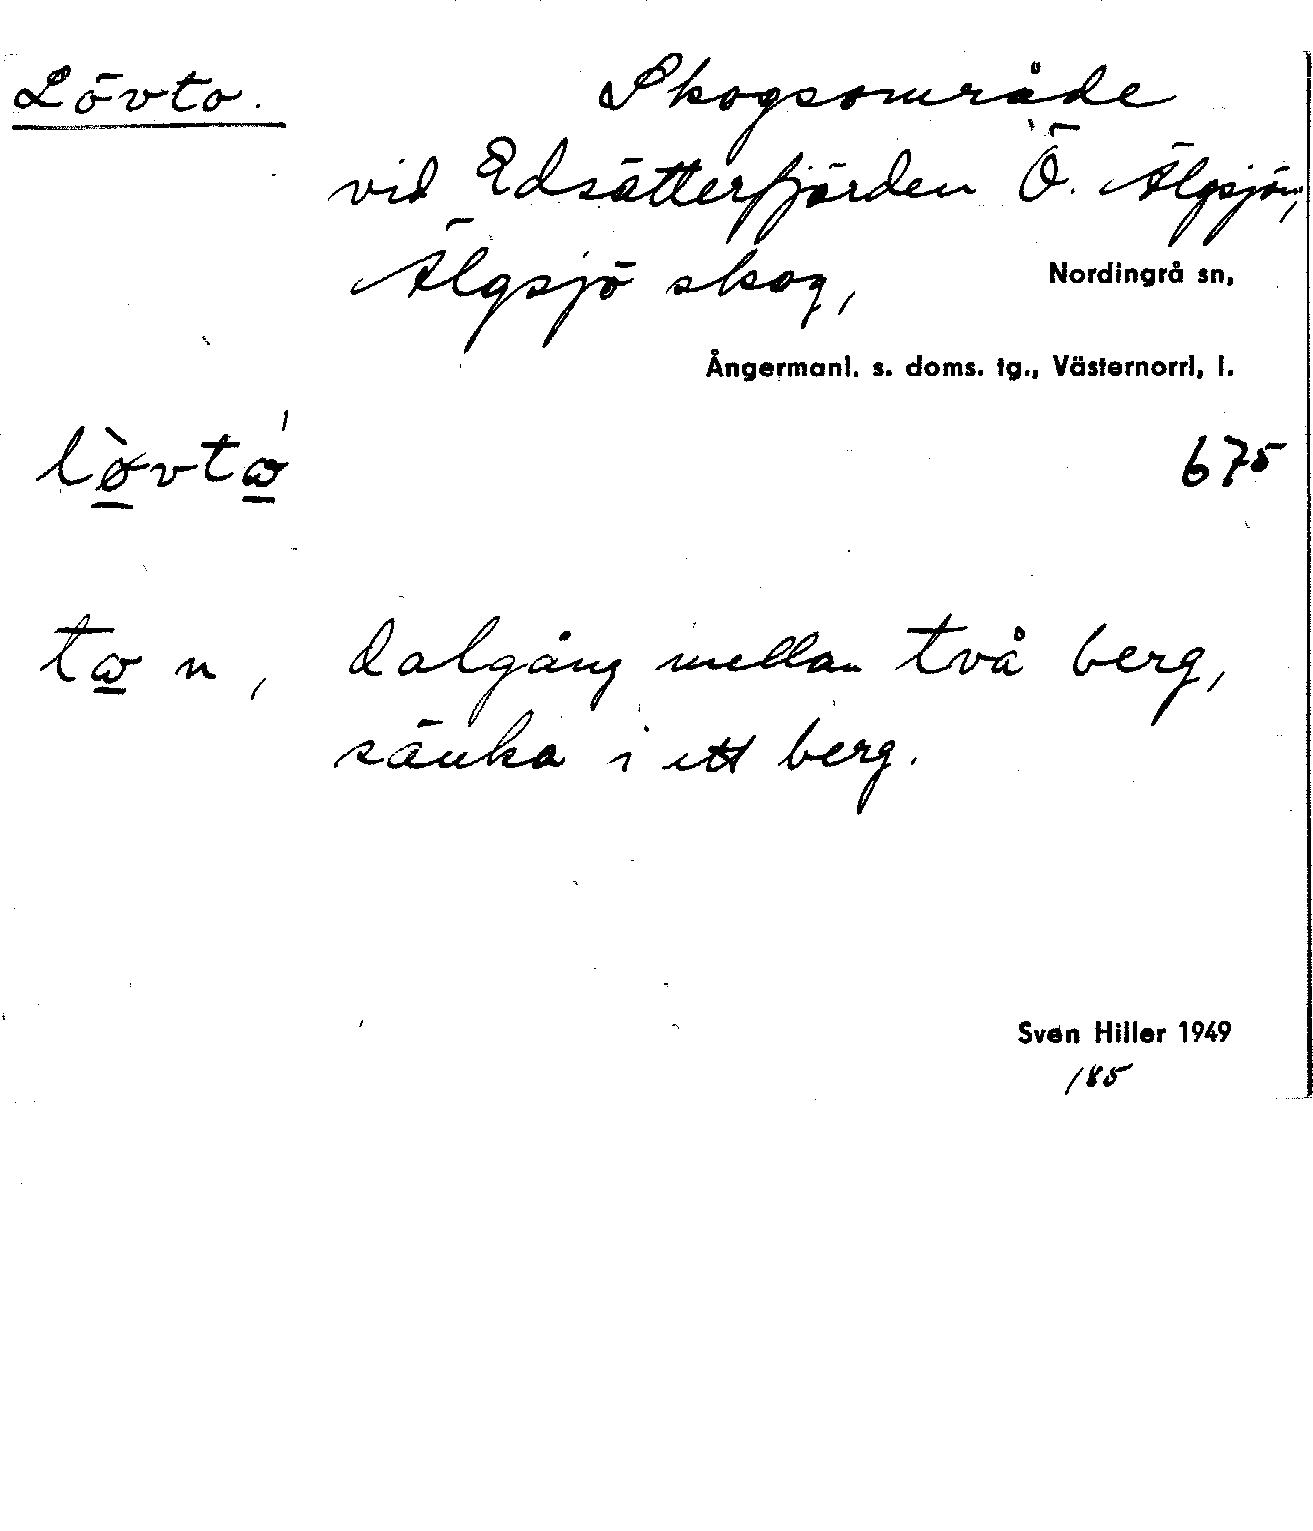 Lövto. Skogsområde
vid Edsätterfjärden Ö. Älgsjön,
Älgsjö skog, Nordingrå sn,
Ångermanl. s. doms. tg., Västernorrl, l.
lø̀vtω' 675
tω n, dalgång mellan två berg,
sänka i ett berg.
Sven Hiller 1949
185